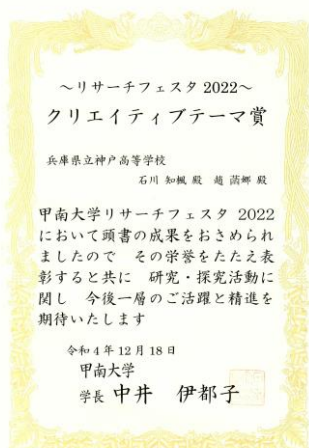 ～リサーチフェスタ 2022～
クリエイティブテーマ賞
兵庫県立神戸高等学校
石川 知楓 殿 趙 茜娜 殿
甲南大学リサーチフェスタ 2022
において頭書の成果をおさめられ
ましたので その栄誉をたたえ表
彰すると共に 研究・探究活動に
関し 今後一層のご活躍と精進を
期待いたします
令和4年12月18日
甲南大学
学長 中井 伊都子